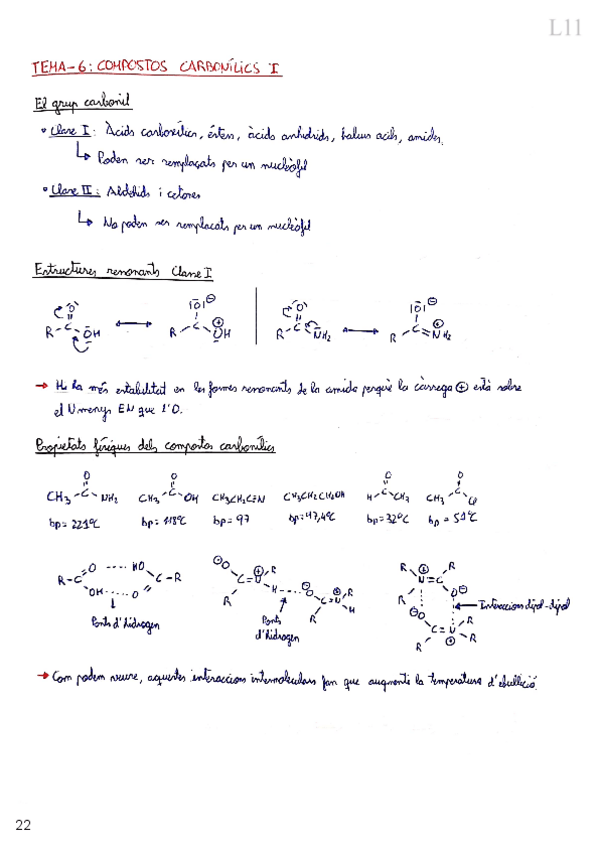 L11
TEMA-6: COMPOSTOS CARBONÍLICS I
El grup carbonil
• Clase I: Àcids carboxílics, èsters, àcids anhidrids, halurs acils, amides.
↳ Poden ser remplaçats per un nucleòfil
• Clase II: Aldehids i cetones
↳ No poden ser remplaçats per un nucleòfil
Estructures resonants Clase I
R-C OH ⟷ R-C |O|⊖ ⊕OH | R-C NH₂ ⟷ R-C |O|⊖ =N⊕H₂
→ Hi ha més estabilitat en les formes resonants de la amida perquè la càrrega ⊕ està sobre
el N menys EN que l'O.
Propietats físiques dels compostos carbonílics
O O O O
CH₃-C-NH₂ CH₃-C-OH CH₃CH₂C≡N CH₃CH₂CH₂OH H-C-CH₃ CH₃-C-Cl
bp=221ºC bp=118ºC bp=97 bp=97,4ºC bp=32ºC bp=51ºC
R-C O ···· HO C-R
OH ···· O
Ponts d'hidrogen
Ponts d'hidrogen
Interaccions dipol-dipol
→ Com podem veure, aquestes interaccions intermoleculars fan que augmenti la temperatura d'ebullició.
22